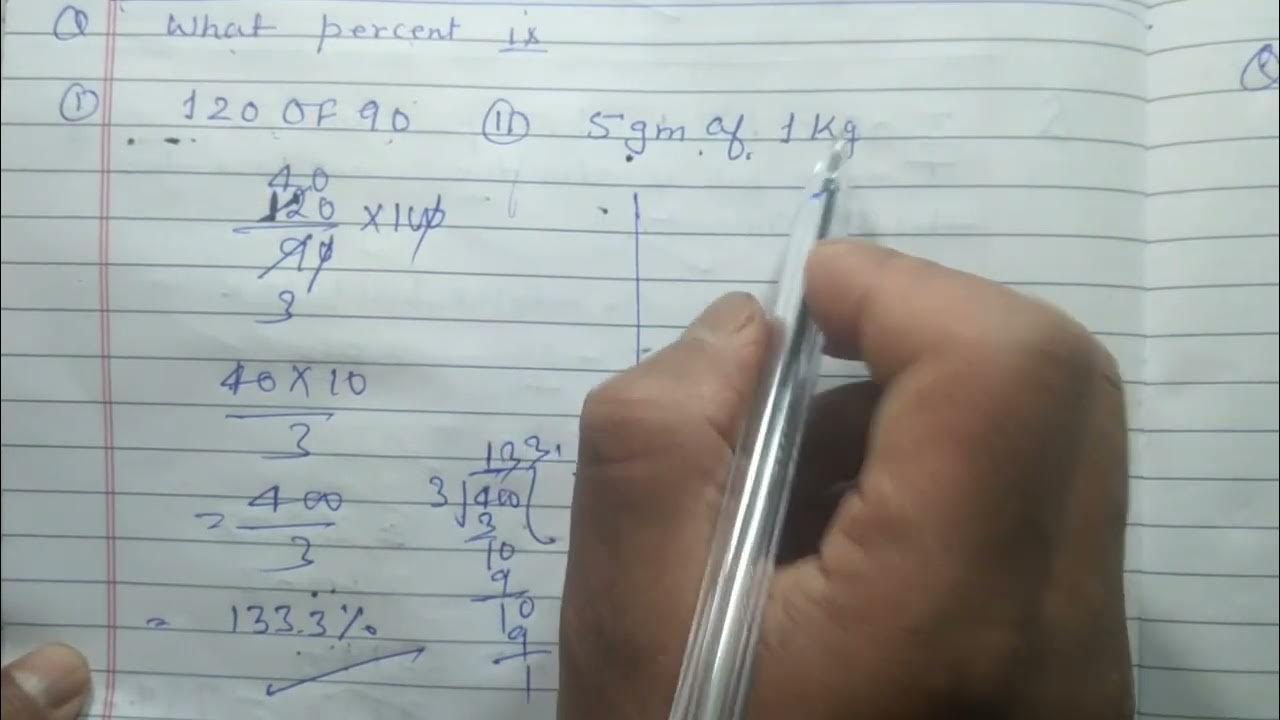 Q What percent is
Q
I 120 OF 90 II 5 gm of 1 Kg
40
120 × 100
90
3
40 × 10
3
= 400
3
= 133.3%
133.
3 400
3
10
9
10
9
1